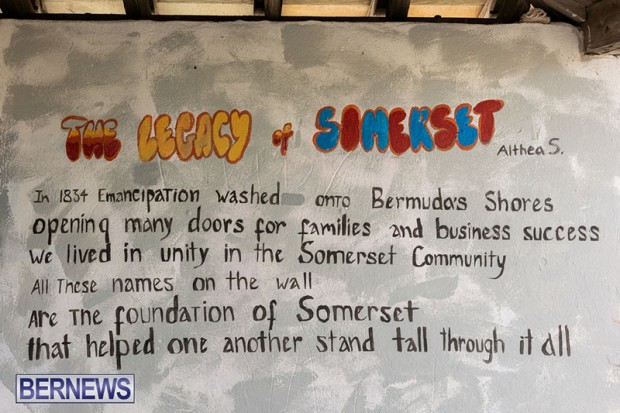 THE LEGACY of SOMERSET
Althea S.
In 1834 Emancipation washed onto Bermuda's Shores
opening many doors for families and business success
We lived in unity in the Somerset Community
All These names on the wall
Are The foundation of Somerset
that helped one another stand tall through it all
BERNEWS